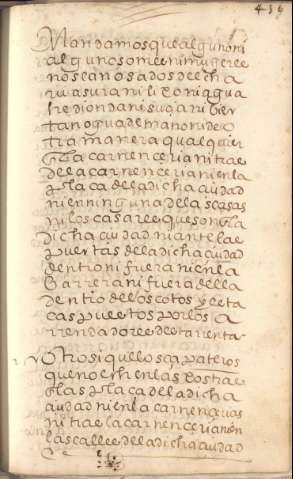 436
Mandamos que algunoni
algunosomenimugeree
nos eanosados de echa
niagua
hedionda ni sucia ni ver
tan o gua de mano ni de o
tra manera qual quier
En la carneceria ni trae
de la carneceria ni en la
plaça de la dicha ciudad
ni en ninguna de las casas
ni los casaree que son En la
dicha ciudad ni ante lae
puertas de la dicha ciudad
dentro ni fuera ni en la
Barrera ni fuera della
dentro de los cotos y esta
cas puestos por los a
rrendadoree desta renta
Otrosi que los çapateros
que no Echen las
En las plaça de la dicha
ciudad ni en la
ni trae la carneceria ni en
las callee de la dicha ciudad